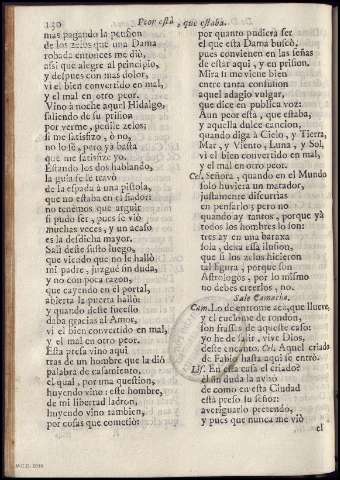 130
Peor està, que estaba.
mas pagando la pension
de los zelos que una Dama
robada entonces me diò,
assi que alegre al principio,
y despues con mas dolor,
vi el bien convertido en mal,
y el mal en otro peor.
Vino à noche aquel Hidalgo,
saliendo de su prision
por verme, pensile zelos;
si me satisfizo, ò no,
no lo sè, pero ya basta
que me satisfize yo.
Estando los dos hablando,
la guia se le travò
de la espada à una pistola,
que no estaba en el fiador:
no tenemos que arguir
si pudo ser, pues se viò
muchas veces, y un acaso
es la desdicha mayor.
Salì deste susto luego,
que viendo que no le hallò
mi padre, juzguè sin duda,
y no con poca razon,
que cayendo en el portal,
abierta la puerta hallò:
y quando deste sucesso
daba gracias al Amor,
vi el bien convertido en mal,
y el mal en otro peor.
Esta presa vino aqui
tras de un hombre que la diò
palabra de casamiento,
el qual, por una question,
huyendo vino: este hombre,
de mi libertad ladron,
huyendo vino tambien,
por cosas que cometiò:
por quanto pudiera ser
el que esta Dama buscò,
pues convienen en las señas
de estar aqui, y en prision.
Mira si me viene bien
entre tanta confusion
aquel adagio vulgar,
que dice en publica voz:
Aun peor està, que estaba,
y aquella dulce cancion,
quando diga à Cielo, y Tierra,
Mar, y Viento, Luna, y Sol,
vi el bien convertido en mal,
y el mal en otro peor.
Cel. Señora, quando en el Mundo
solo huviera un matador,
justamente discurrias
en pensarlo; pero no
quando ay tantos, porque yà
todos los hombres lo son:
tres ay en una baraxa
sola, dexa essa ilusion,
que si los zelos hicieron
tal figura, porque son
Astrologos, por lo mismo
no debes creerlos, no.
Sale Camacho.
Cam. Lo de entrome acà, que llueve,
y el cuelome de rondon,
son frasis de aqueste caso:
yo he de salir, vive Dios,
deste encanto. Cel. Aquel criado
de Fabio hasta aqui se entrò.
Lis. En esta casa el criado?
el sin duda la avisò
de como en esta Ciudad
està preso su señor:
averiguarlo pretendo,
y pues que nunca me viò
el